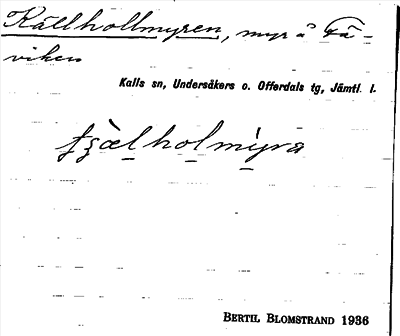 Källhollmyren, myr å Få-
viken
Kalls sn, Undersåkers o. Offerdals tg, Jämtl. l.
BERTH. BLOMSTRAND 1936